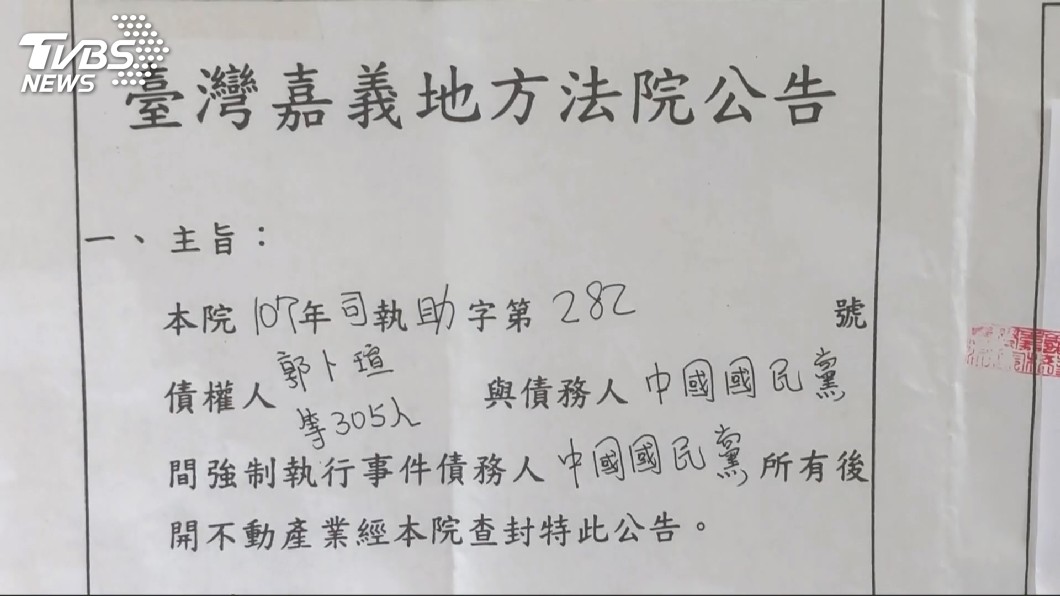 TVBS
NEWS
臺灣嘉義地方法院公告
一、主旨：
本院107年司執助字第282號
債權人郭卜瑄等305人與債務人中國國民黨
間強制執行事件債務人中國國民黨所有後
開不動產業經本院查封特此公告。